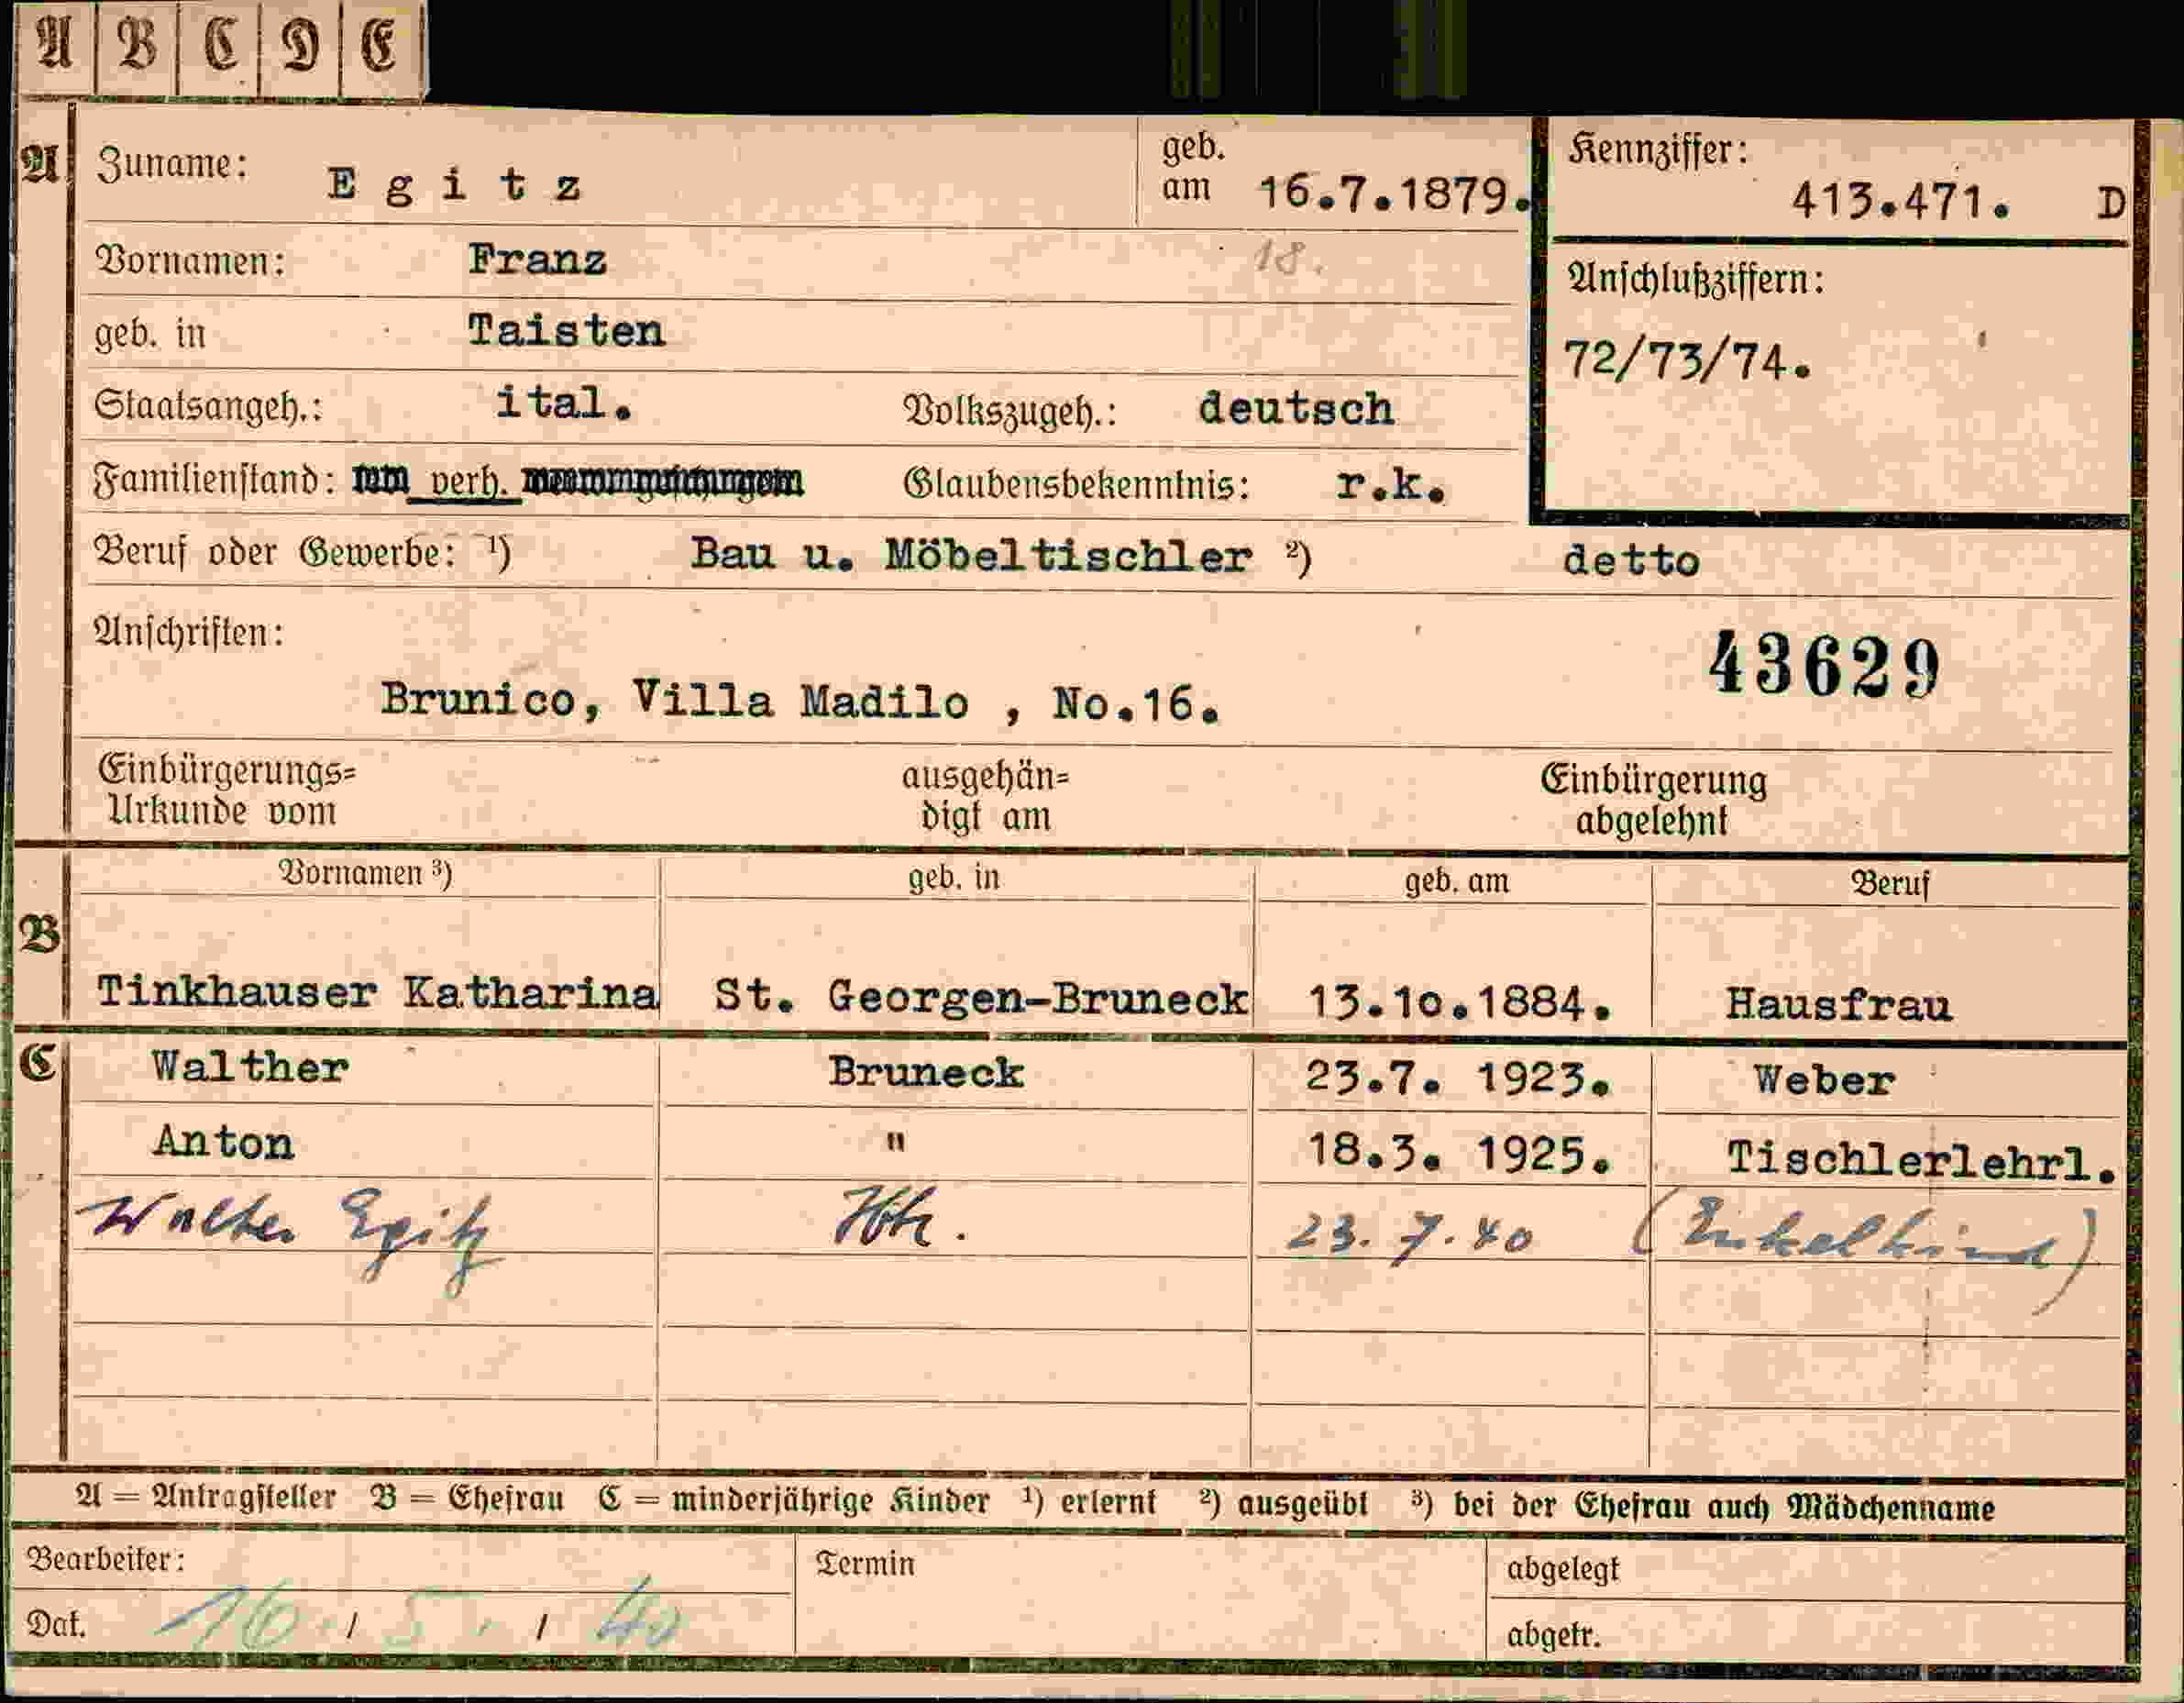 A B C D E
A Zuname: Egitz geb. am 16.7.1879. Kennziffer: 413.471. D
Vornamen: Franz 18. Anschlußziffern:
geb. in Taisten 72/73/74.
Staatsangeh.: ital. Volkszugeh.: deutsch
Familienstand: verh. Glaubensbekenntnis: r.k.
Beruf oder Gewerbe: ¹) Bau u. Möbeltischler ²) detto
Anschriften: 43629
Brunico, Villa Madilo , No.16.
Einbürgerungs= ausgehän= Einbürgerung
Urkunde vom digt am abgelehnt
Vornamen ³) geb. in geb. am Beruf
B
Tinkhauser Katharina St. Georgen-Bruneck 13.10.1884. Hausfrau
C Walther Bruneck 23.7. 1923. Weber
Anton " 18.3. 1925. Tischlerlehrl.
Walter Egitz 23.7.40 (Enkelkind)
A = Antragsteller B = Ehefrau C = minderjährige Kinder ¹) erlernt ²) ausgeübt ³) bei der Ehefrau auch Mädchenname
Bearbeiter: Termin abgelegt
Dat. 16. / 5. / 40 abgetr.